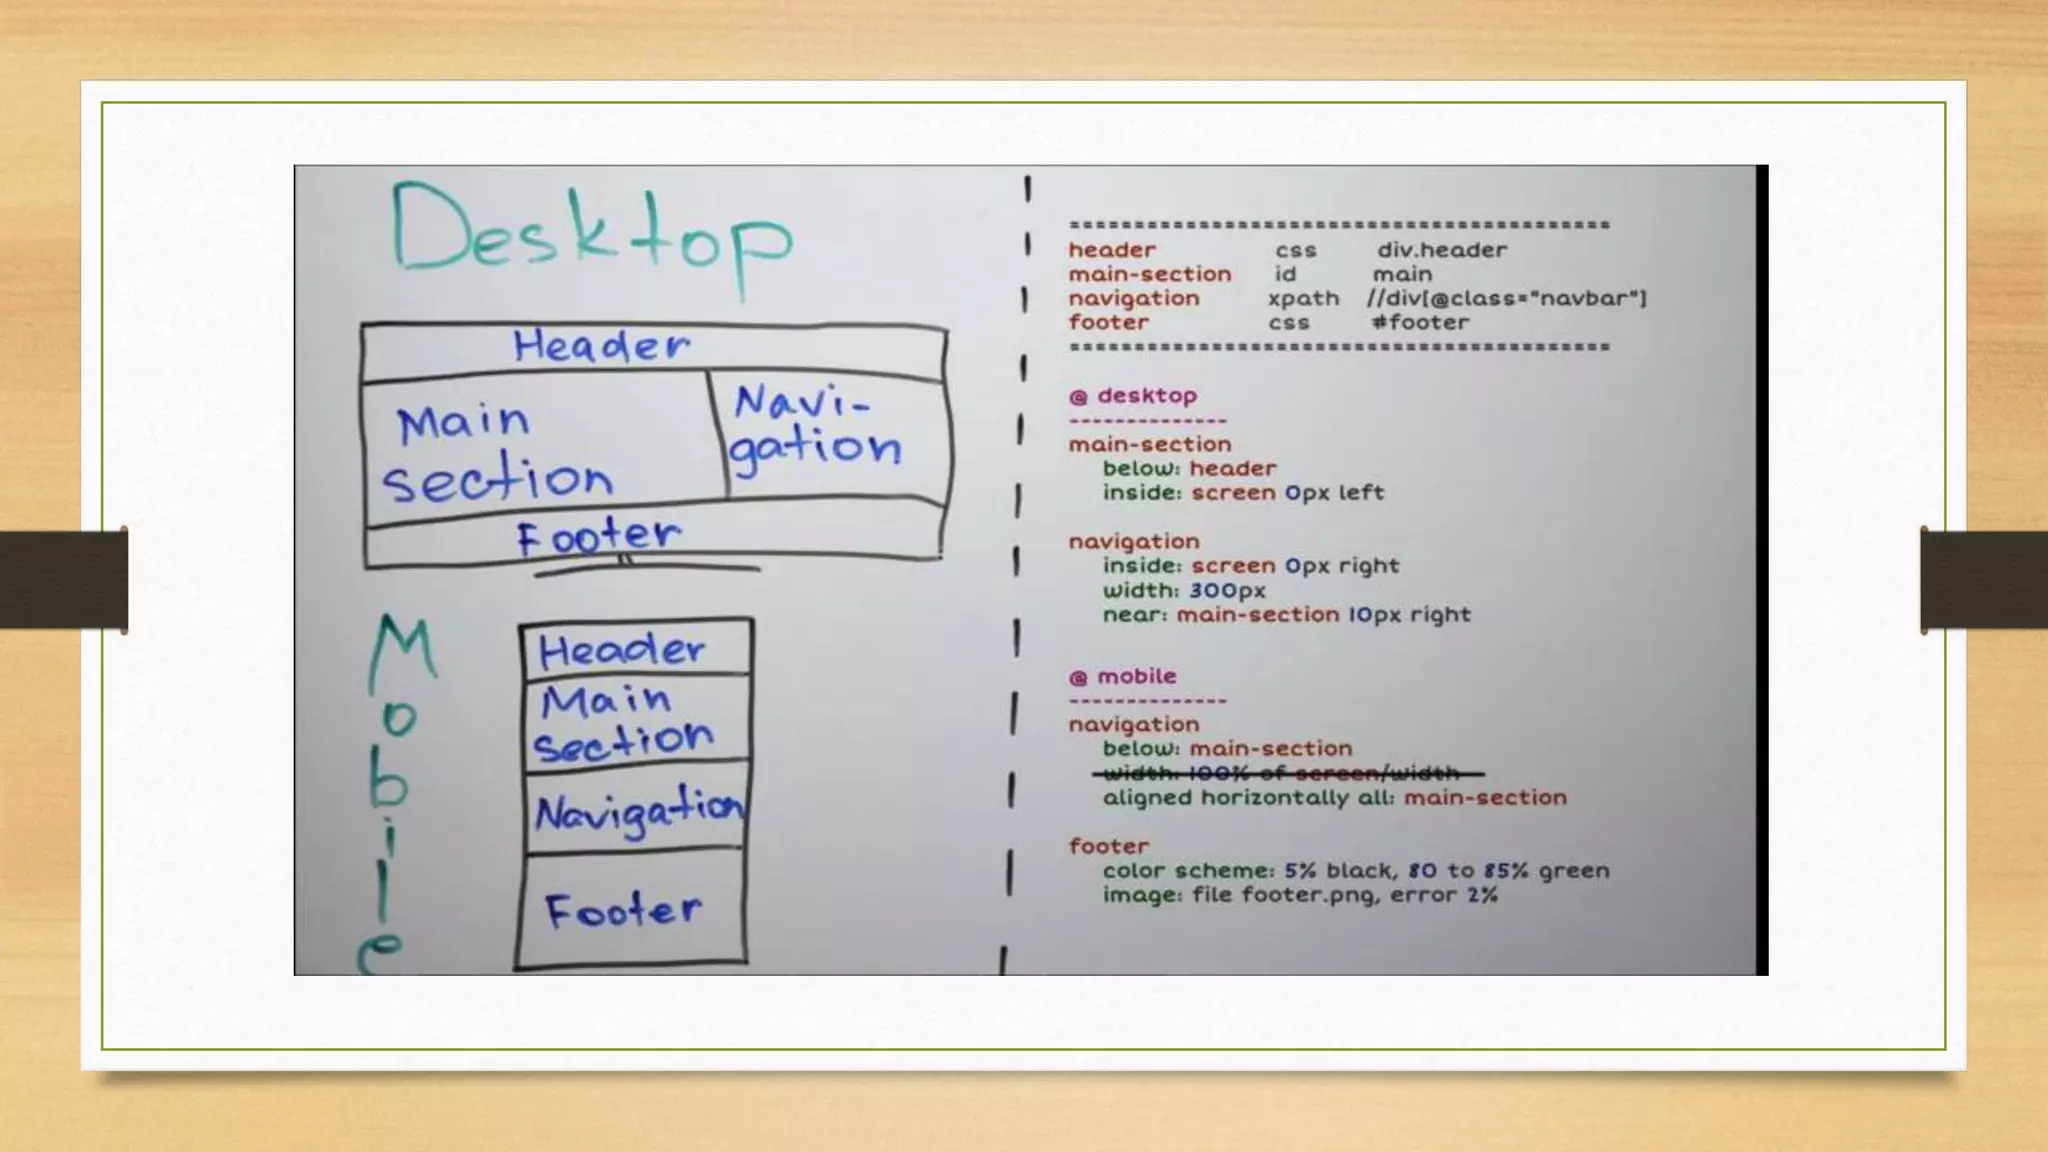 Desktop
Header
Main
section
Navi-
gation
Footer
Mobile
Header
Main
section
Navigation
Footer
========================================
header css div.header
main-section id main
navigation xpath //div[@class="navbar"]
footer css #footer
========================================
@ desktop
--------------
main-section
below: header
inside: screen 0px left
navigation
inside: screen 0px right
width: 300px
near: main-section 10px right
@ mobile
--------------
navigation
below: main-section
width: 100% of screen/width
aligned horizontally all: main-section
footer
color scheme: 5% black, 80 to 85% green
image: file footer.png, error 2%